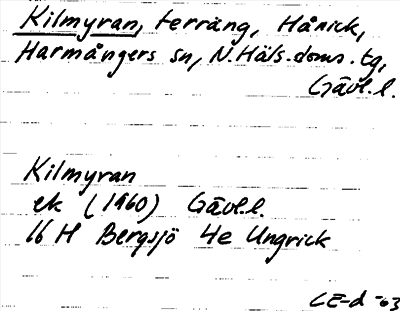 Kilmyran, terräng, Hånick,
Harmångers sn, N.Häls.doms.tg,
Gävl.l.
Kilmyran
ek (1960) Gävl.l.
16 H Bergsjö 4e Ungrick
CE-d -63